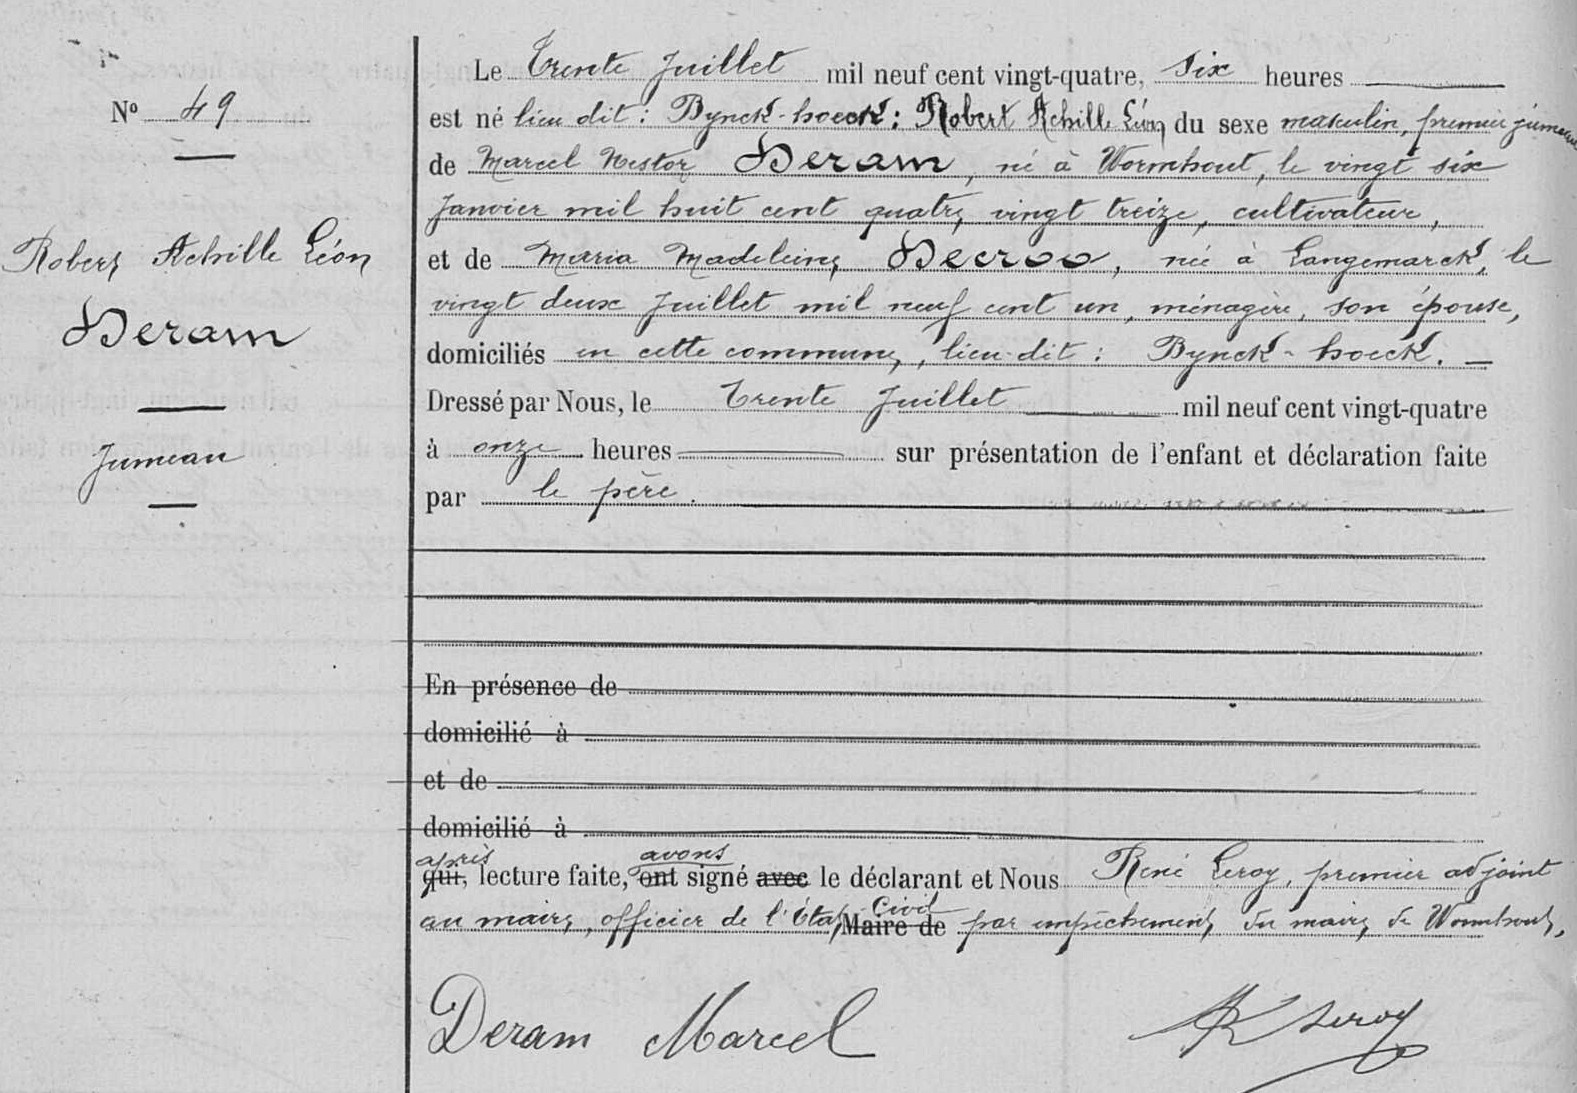 Le Trente Juillet mil neuf cent vingt-quatre, six heures
Nº 49
est né lieu dit : Bynck-hoeck : Robert Achille Léon du sexe masculin, premier jumeau
de Marcel Nestor Deram, né à Wormhout, le vingt six
Janvier mil huit cent quatre vingt treize, cultivateur,
Robert Achille Léon
Deram
Jumeau
et de Maria Madeleine Decroo, née à Langemarck, le
vingt deux Juillet mil neuf cent un, ménagère, son épouse,
domiciliés en cette commune, lieu-dit : Bynck-hoeck.
Dressé par Nous, le Trente Juillet mil neuf cent vingt-quatre
à onze heures sur présentation de l'enfant et déclaration faite
par le père.
En présence de
domicilié à
et de
domicilié à
après avons
qui, lecture faite, ont signé avec le déclarant et Nous René Leroy, premier adjoint
Civil
au maire, officier de l'État Maire de par empêchement du maire de Wormhout,
Deram Marcel
R Leroy